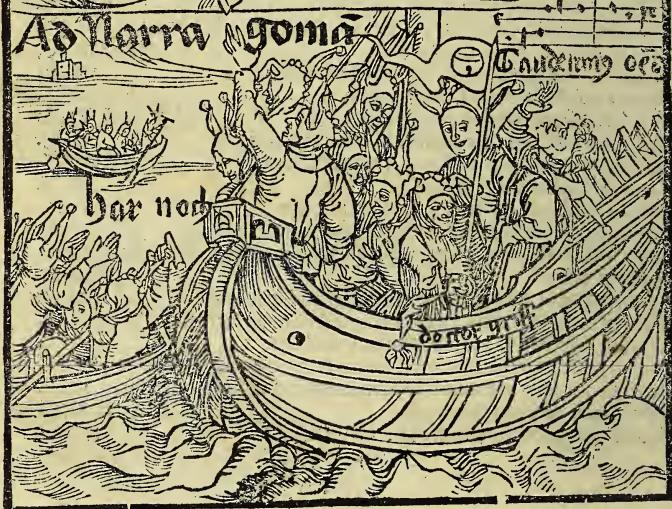 Ad Narra gomā
Gaudeamꝰ oēs
har noch
doctor griff